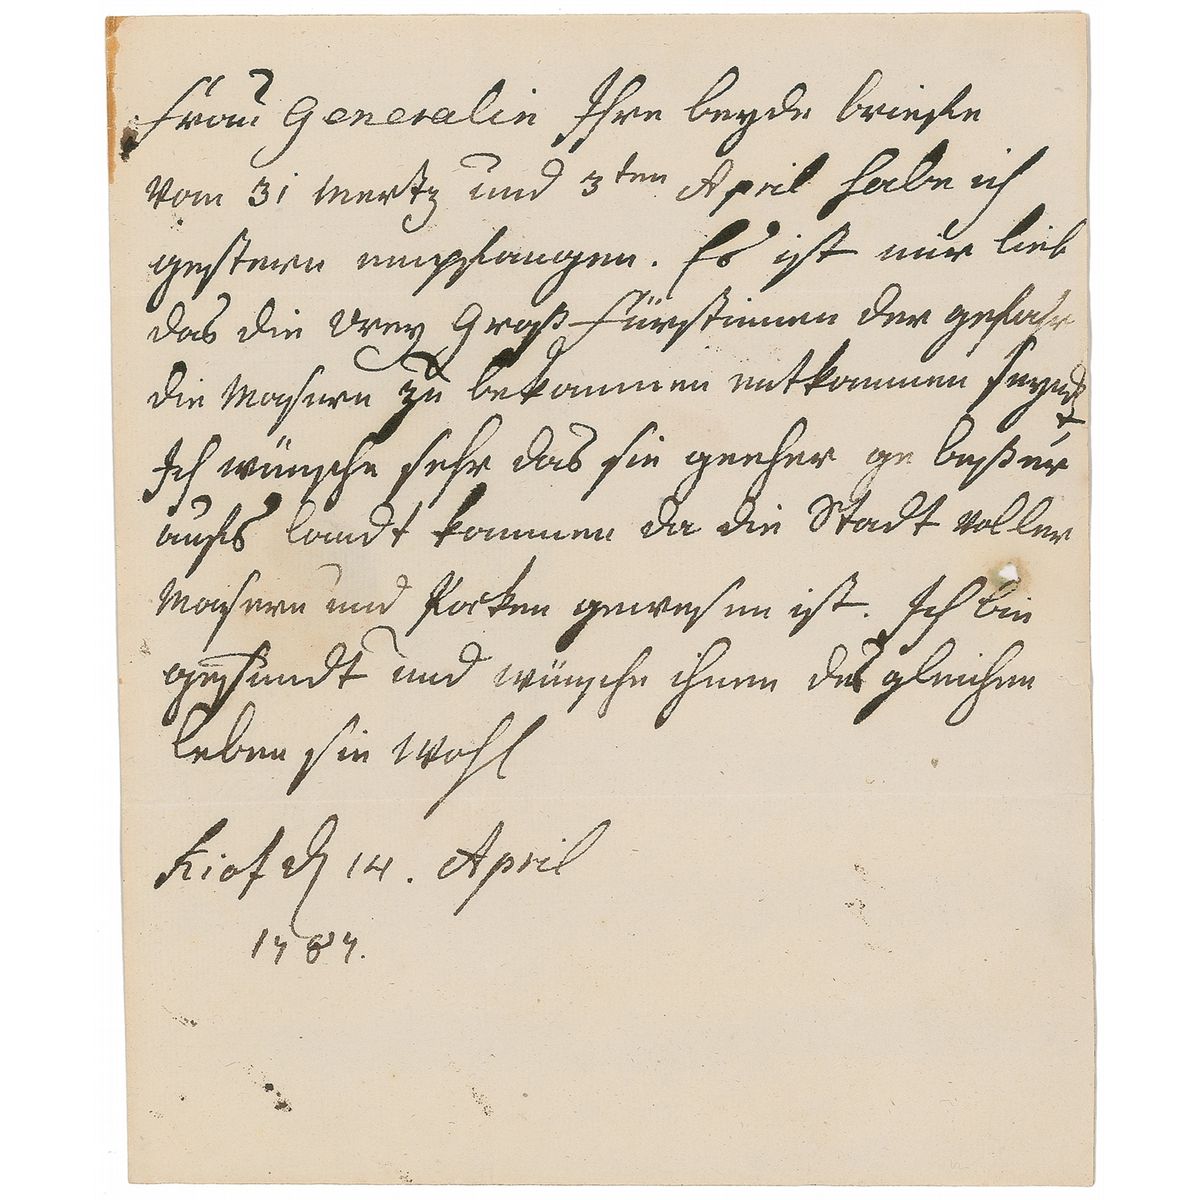 Frau Generalin Ihre beyde briefe
vom 31 Mertz und 3ten April habe ich
gestern empfangen. Es ist mir lieb
das die Drey Groß Fürstinnen der gefahr
die Masern zu bekommen entkommen seynd
Ich wünsche sehr das sie geeher ge beßer
aufs landt kommen da die Stadt voller
Masern und Pocken gewesen ist. Ich bin
gesundt und wünsche ihnen des gleichen
leben sie wohl
Kiof d 14. April
1787.